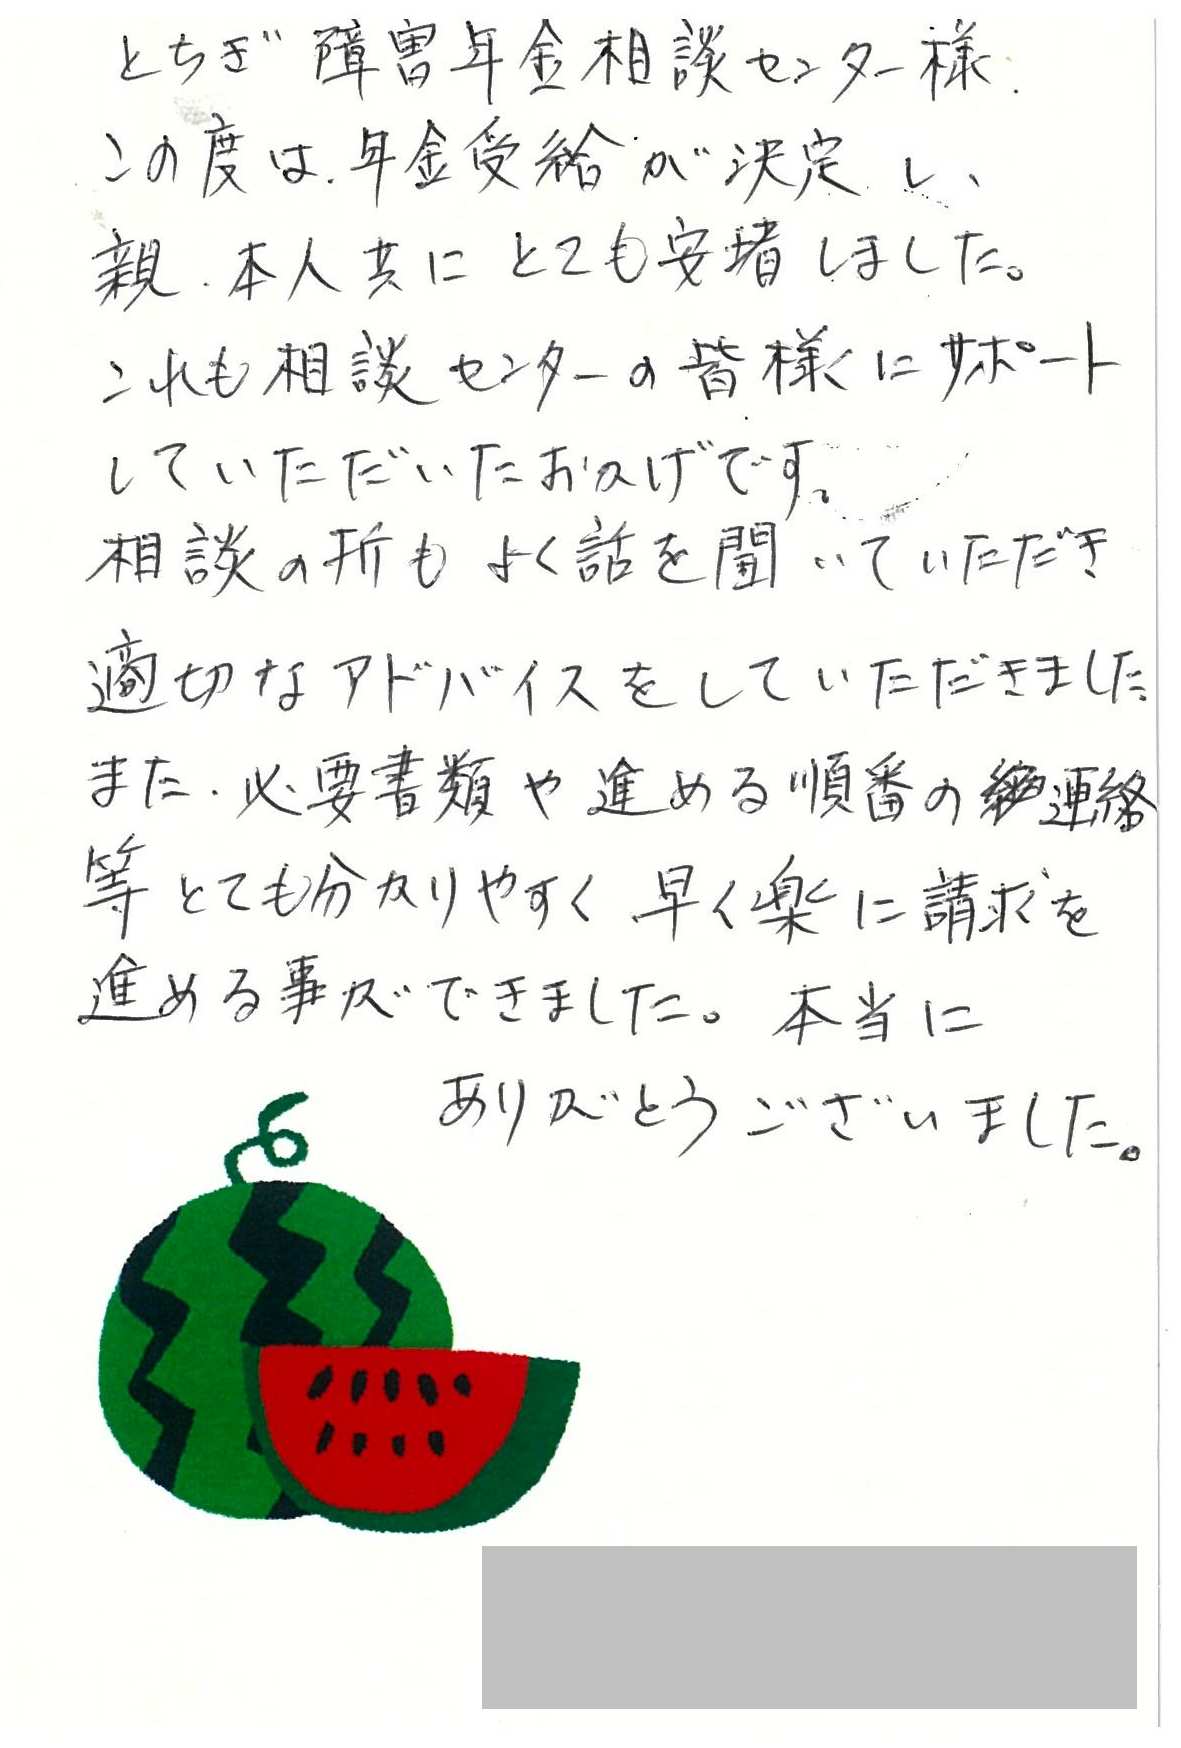 とちぎ障害年金相談センター様
この度は、年金受給が決定し、
親、本人共にとても安堵しました。
これも相談センターの皆様にサポート
していただいたおかげです。
相談の折もよく話を聞いていただき
適切なアドバイスをしていただきました
また、必要書類や進める順番の連絡
等とても分かりやすく早く楽に請求を
進める事ができました。本当に
ありがとうございました。